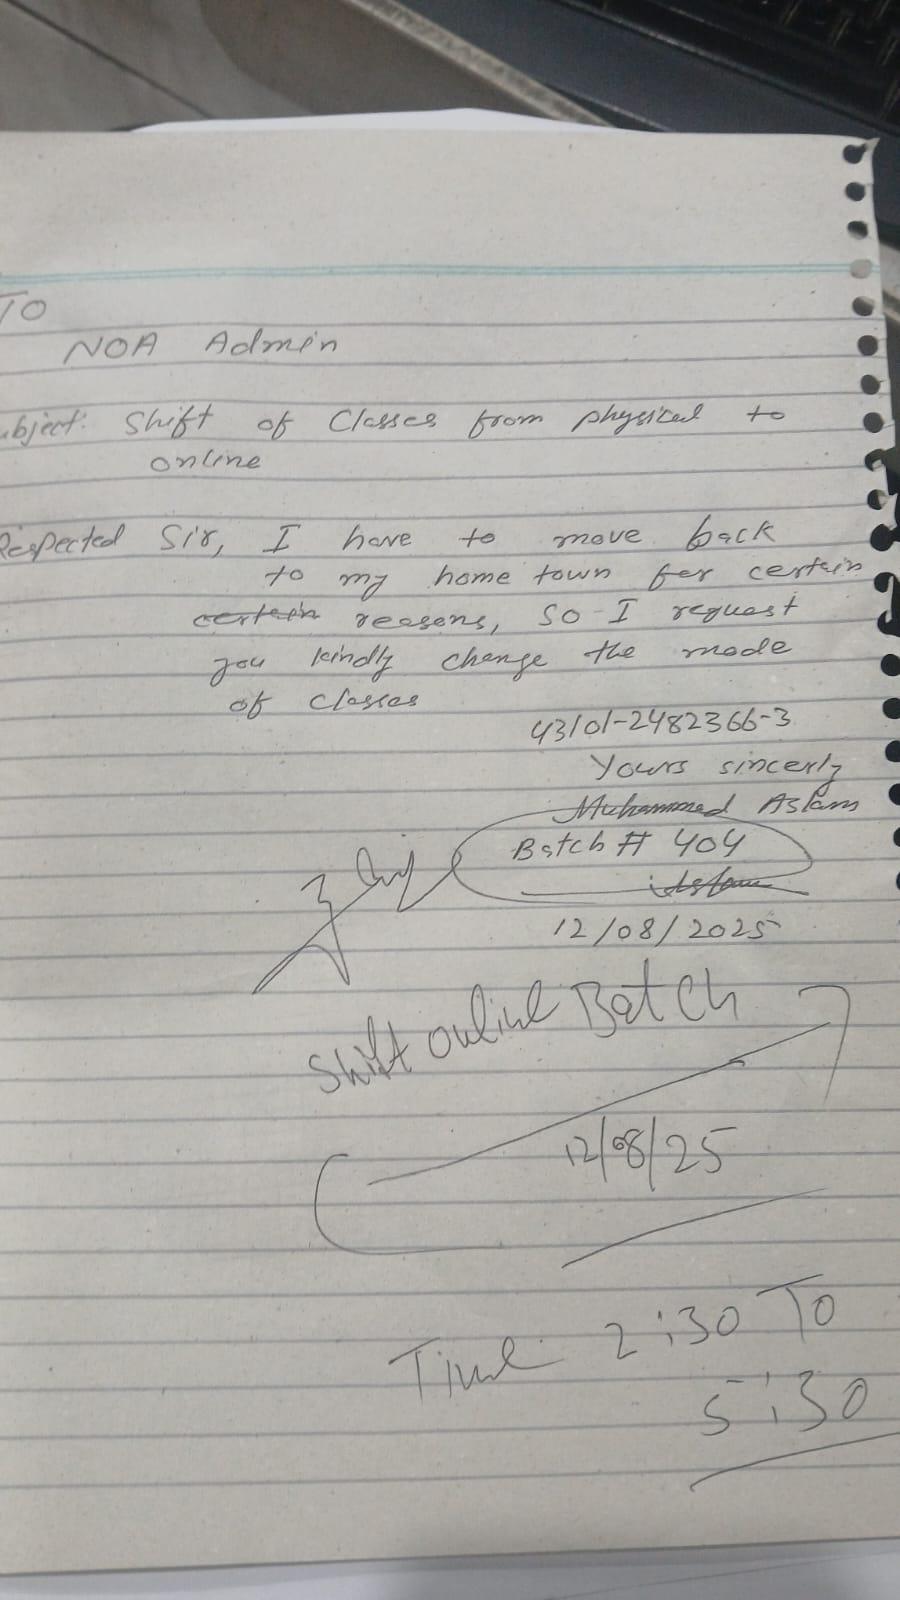 TO
NOA Admin
ubject: Shift of Classes from physical to
online
Respected Sir, I have to move back
to my home town for certain
certain reasons, so I request
you kindly change the mode
of classes
43101-2482366-3
Yours sincerly
Muhammed Aslam
Batch # 404
Aslam
12/08/2025
Shift online Batch
12/08/25
Time 2:30 To
5:30